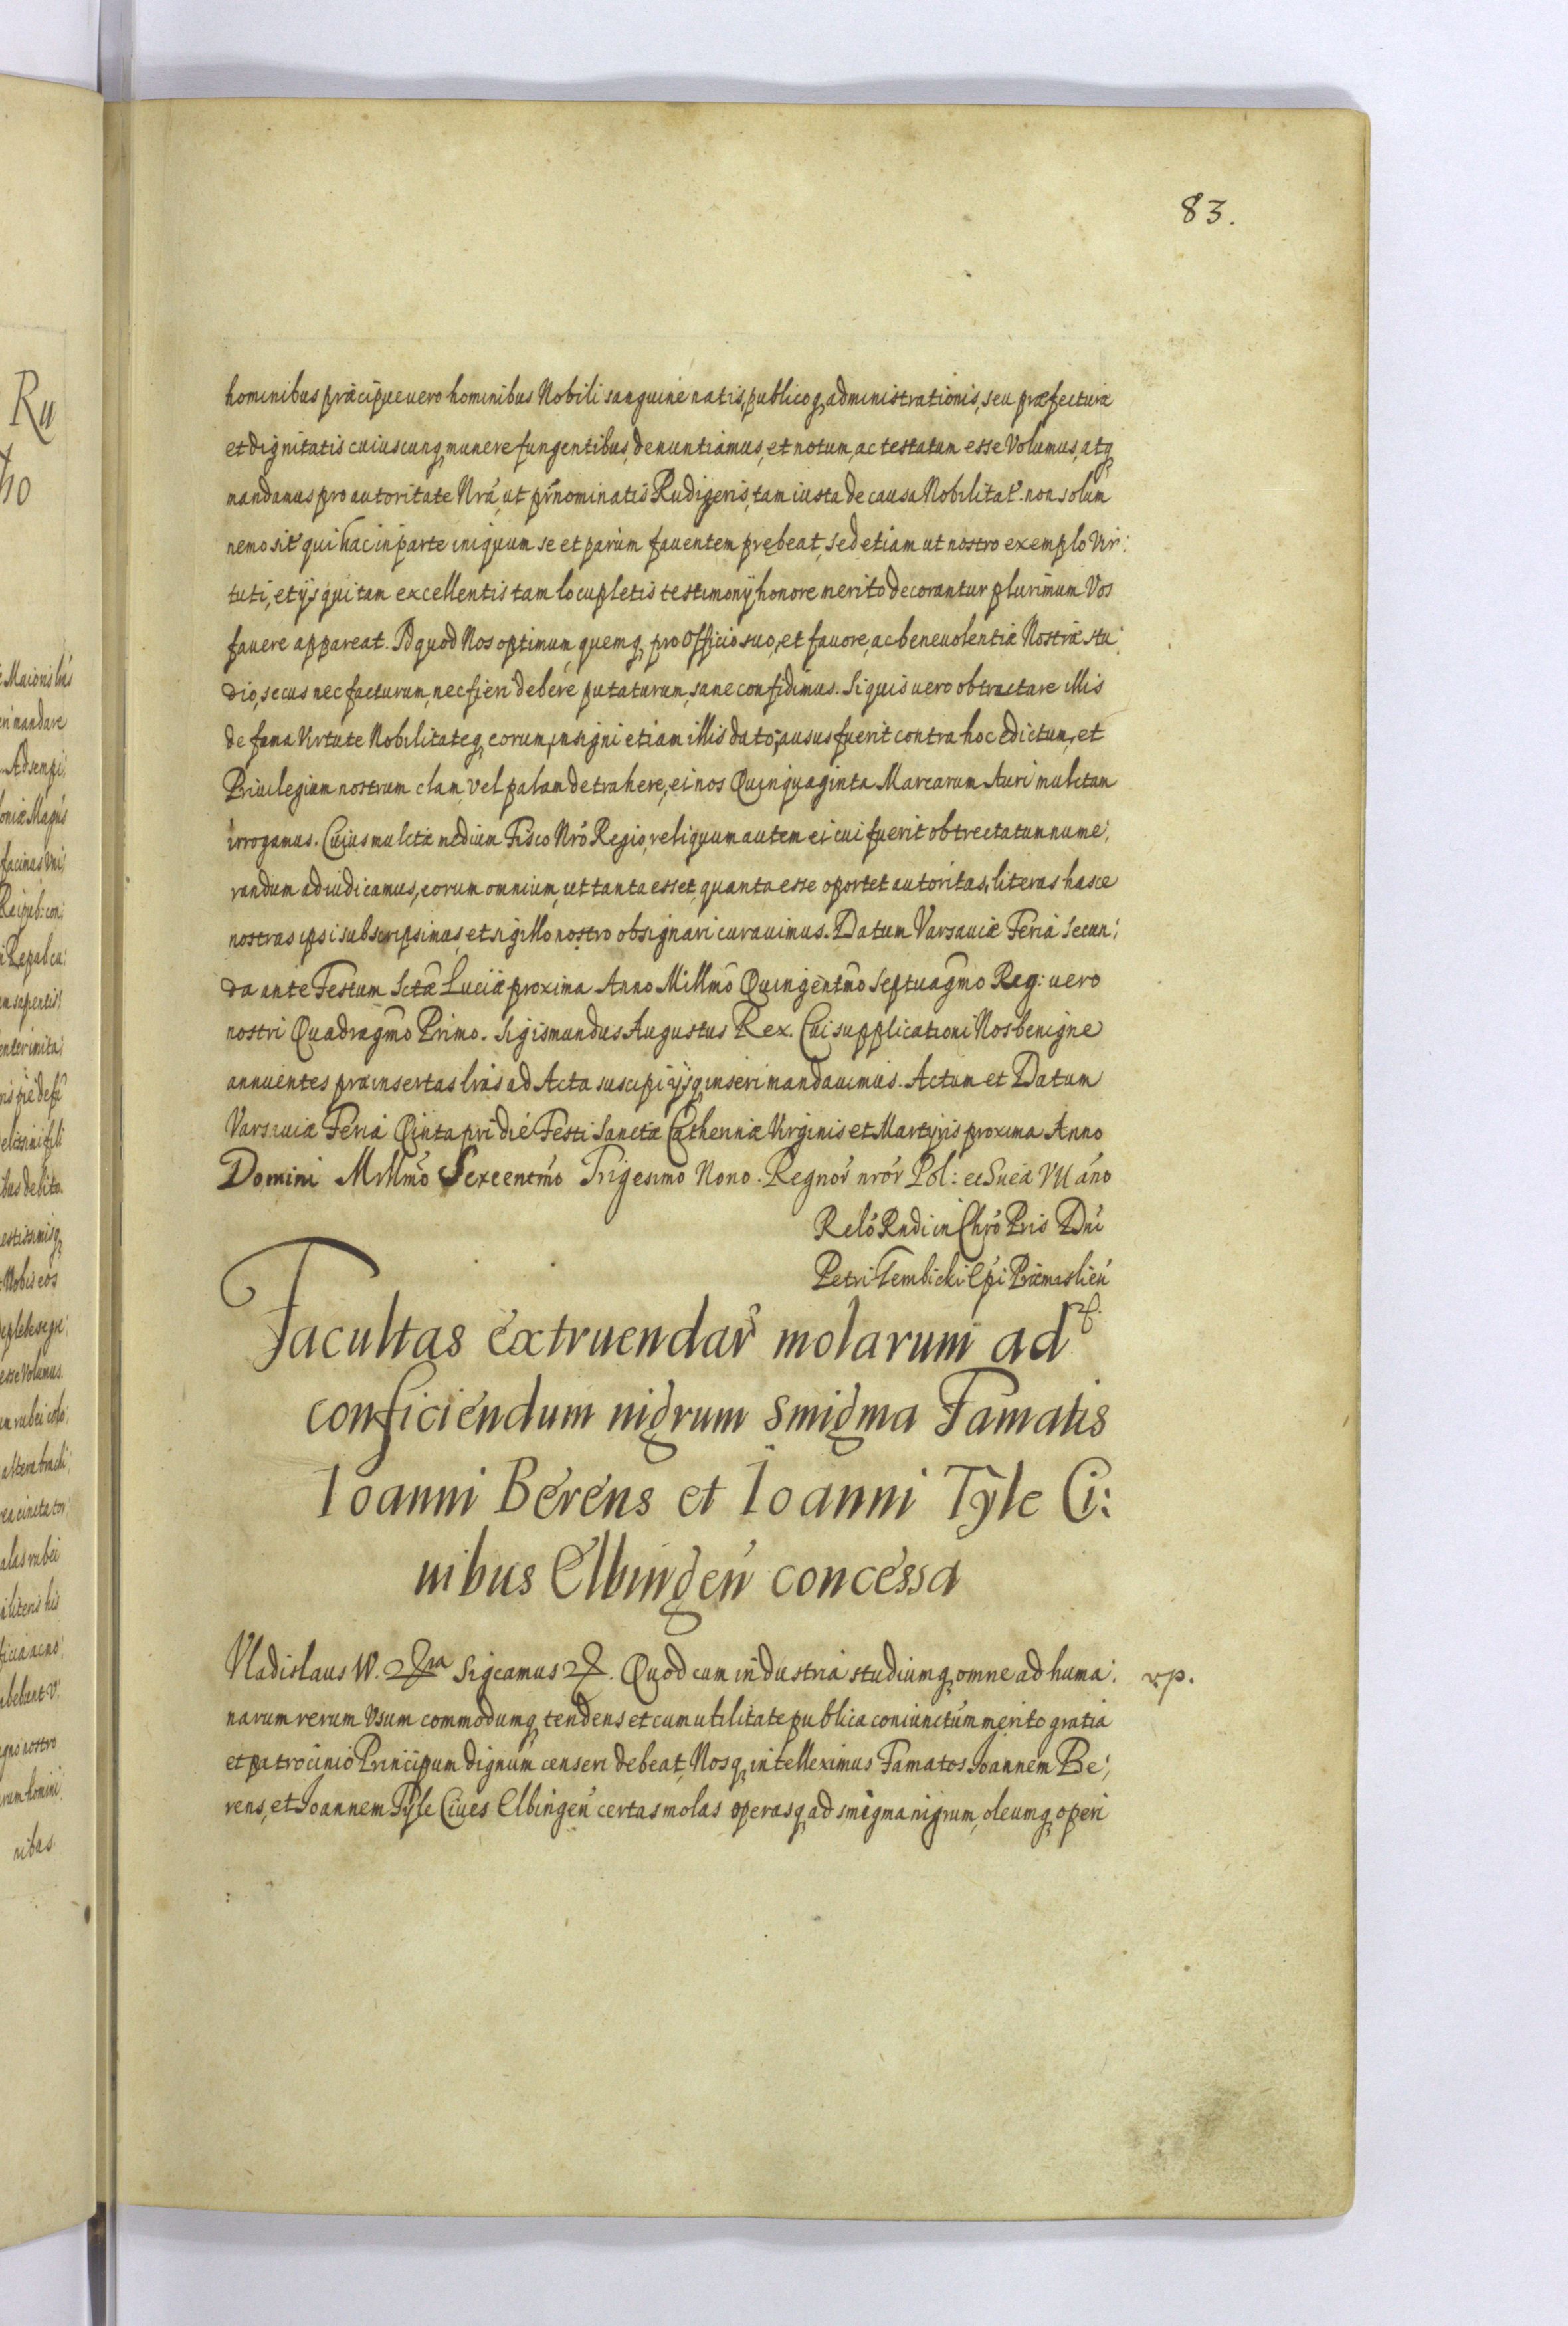 83.
hominibus præcipue vero hominibus Nobili sanguine natis, publicoq, administrationis, seu præfecturæ
et dignitatis cuiuscunq, munere fungentibus, denuntiamus, et notum, ac testatum esse Volumus, atq,
mandamus pro autoritate Nrã, ut pr̃nominatis Rudigeris, tam iusta de causa Nobilitat̃. non solum
nemo sit qui hac in parte iniquum se et parum faventem prębeat, sed etiam ut nostro exemplo Vir:
tuti, et ijs qui tam excellentis tam locupletis testimonij honore merito decorantur plurimum Vos
favere appareat. Id quod Nos optimum quemq, pro Officio suo, et favore, ac benevolentiæ Nostræ stu:
dio, secus nec facturum, nec fieri debere putaturum, sane confidimus. Si quis vero obtractare illis
de fama Virtute Nobilitateq, eorum, insigni etiam illis dato, ausus fuerit contra hoc edictum, et
Privilegium nostrum clam, vel palam detrahere, ei nos Quinquaginta Marcarum Auri mulctam
irrogamus. Cuius mulctæ medium Fisco Nrõ Regio, reliquum autem ei cui fuerit obtrectatum nume:
randum adiudicamus, eorum omnium, ut tanta esset, quanta esse oportet autoritas, literas hasce
nostras ipsi subscripsimus, et sigillo nostro obsignari curavimus. Datum Varsaviæ Feria Secun:
da ante Festum Sctæ̃ Luciæ proxima Anno Millm̃o Quingentm̃o Septuagm̃o Reg: vero
nostri Quadragm̃o Primo. Sigismundus Augustus Rex. Cui supplicationi Nos benigne
annuentes præinsertas lrãs ad Acta suscipi ijsq, inseri mandavimus. Actum et Datum
Varsaviæ Feria Qinta pridie Festi Sanctæ Catherinæ Virginis et Martyris proxima Anno
Domini Millm̃o Sexcentm̃o Trigesimo Nono. Regnor̃ nror̃ Pol: et Sueæ VII año
Relõ Rndi in Chrõ Pris Dnĩ
Petri Gembicki Epĩ Præmislień
Facultas extruendar̃ molarum ad
conficiendum nigrum smigma Famatis
Ioanni Berens et Ioanni Tyle Ci:
uibus Elbingeñ concessa
Vladislaus IV. Sigcamus. Quod cum industria studiumq, omne ad huma:
rp.
narum rerum Vsum commodumq, tendens et cum utilitate publica coniunctum merito gratia
et patrocinio Principum dignum censeri debeat, Nosq, intelleximus Famatos Joannem Be:
rens, et Joannem Tyle Ciues Elbingeñ certas molas operasq, ad smigma nigrum, oleumq, operi